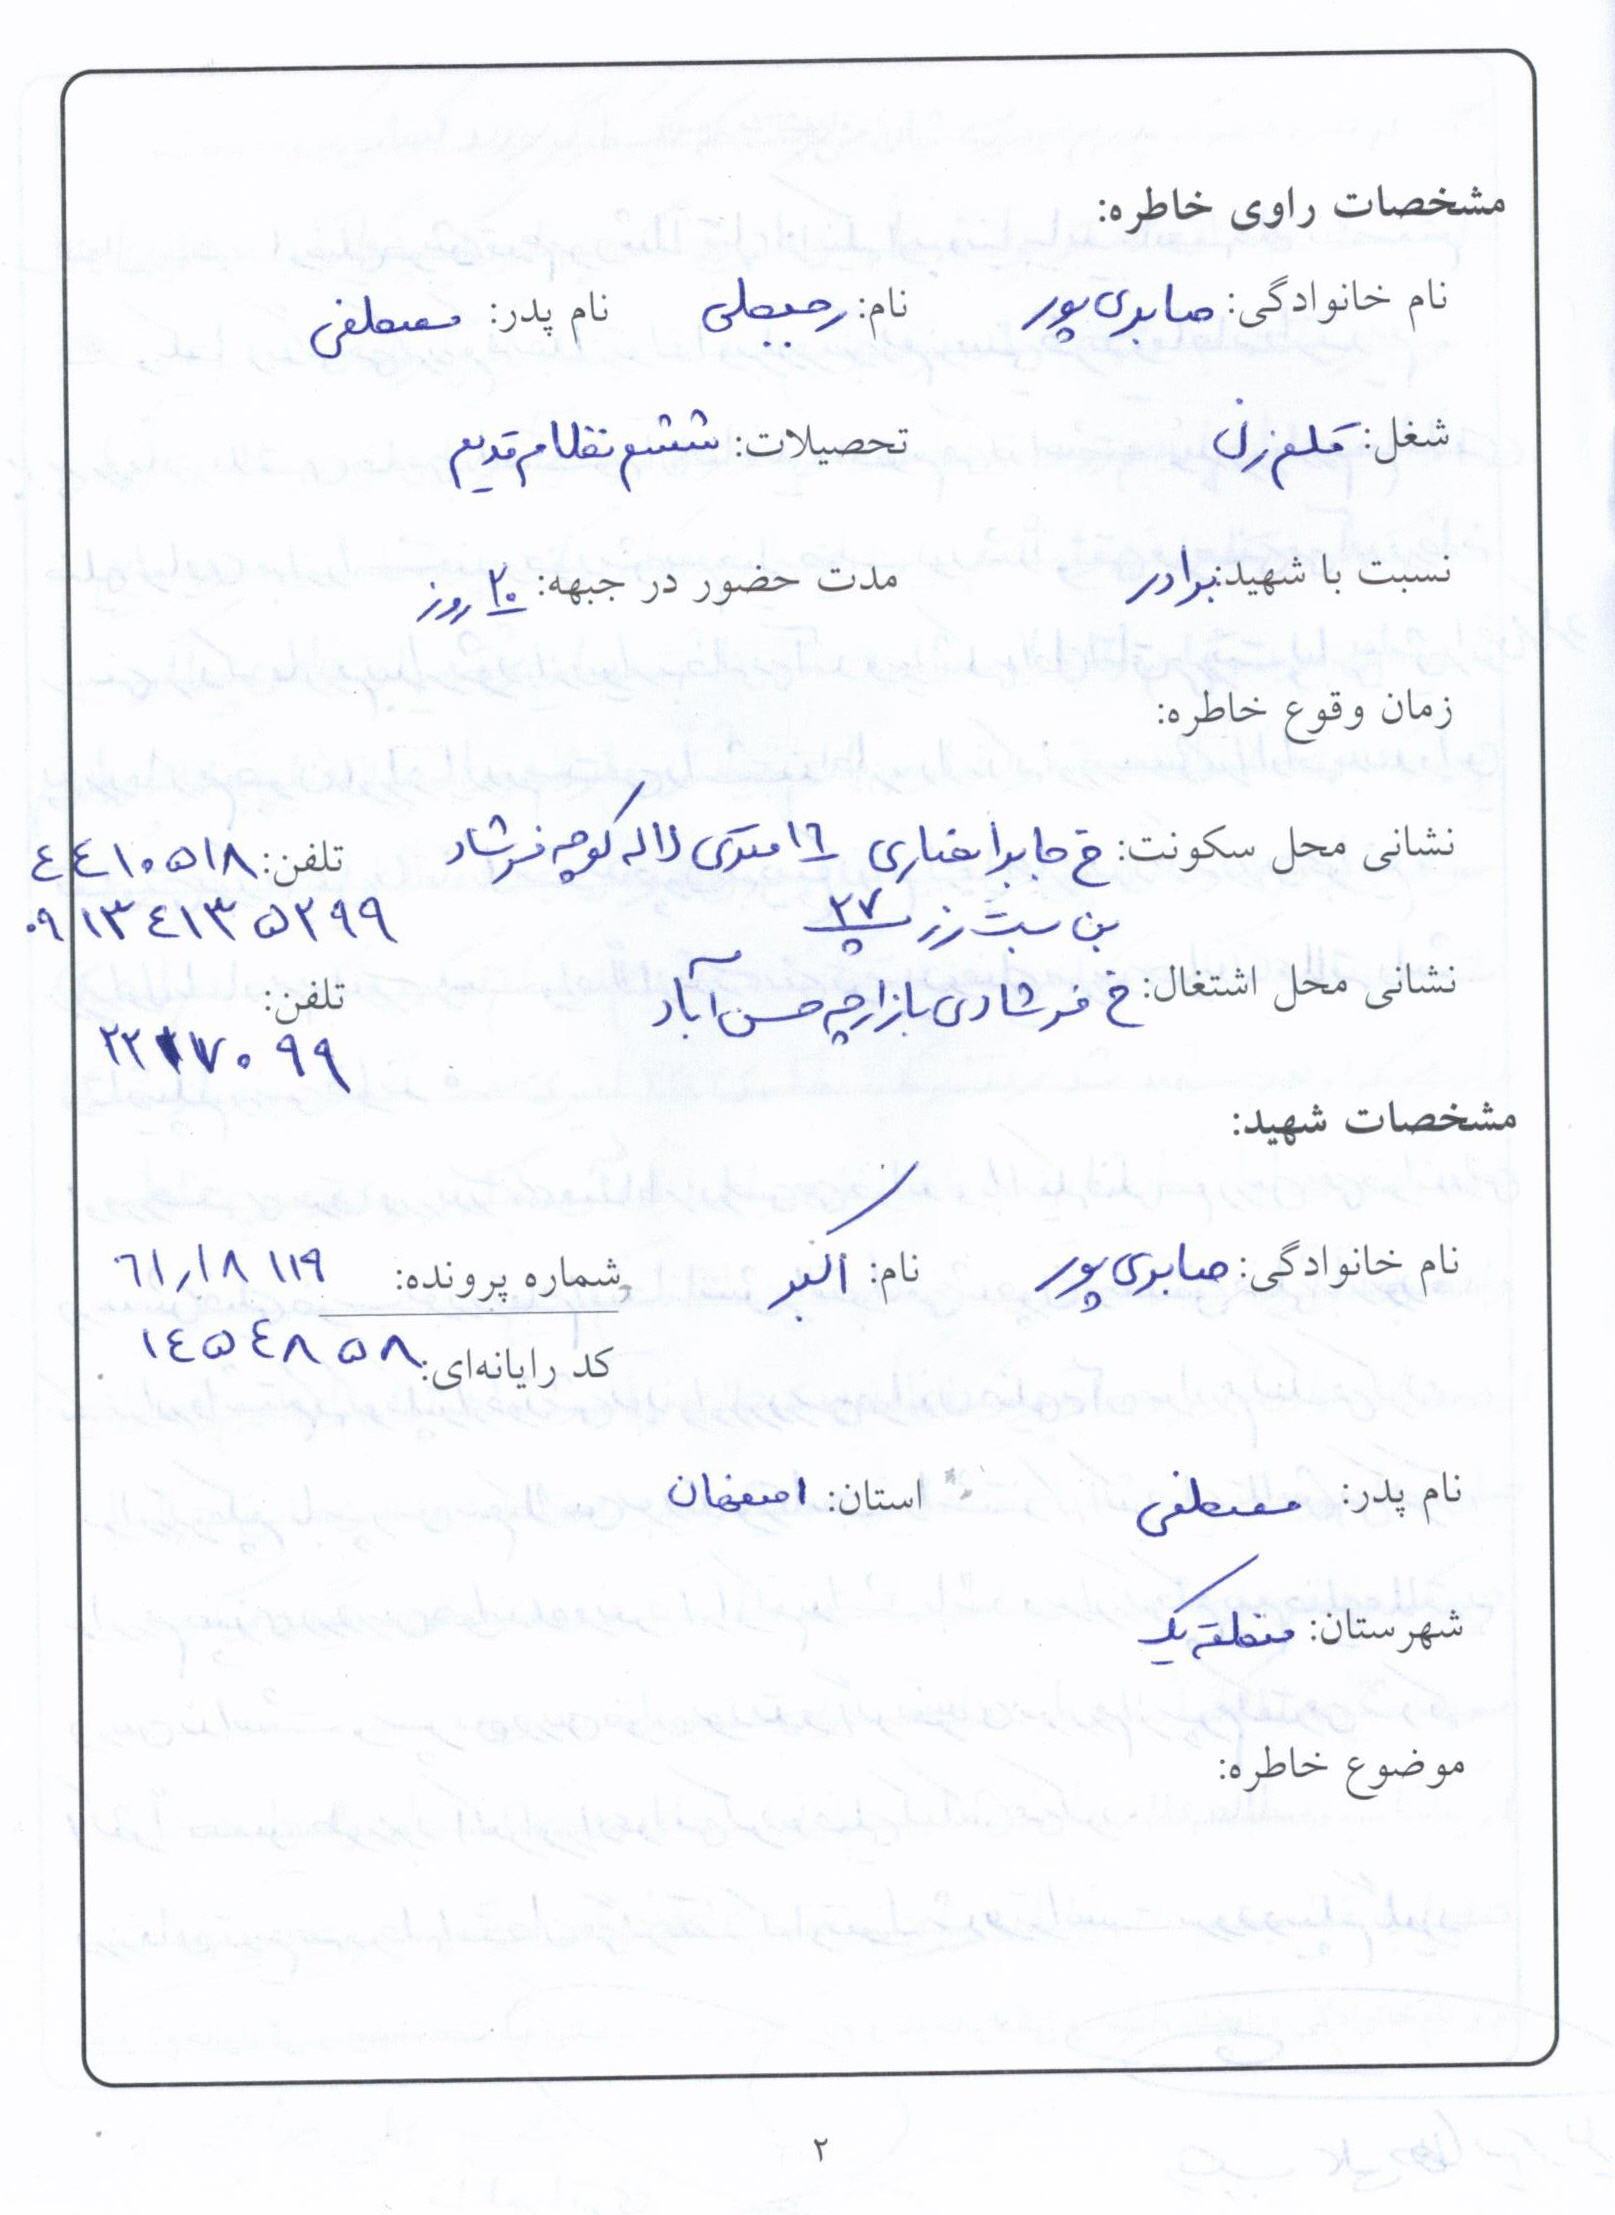 مشخصات راوی خاطره:
نام خانوادگی: صابری پور نام: رجبعلی نام پدر: مصطفی
شغل: قلم زنی تحصیلات: ششم نظام قدیم
نسبت با شهید: برادر مدت حضور در جبهه: ۲۰ روز
زمان وقوع خاطره:
نشانی محل سکونت: خ جابر انصاری ۱۶ متری لاله کوچه فرشاد تلفن: ۴۴۱۰۵۱۸
بن بست رز پ ۲۷ ۰۹۱۳۴۱۳۵۲۹۹
نشانی محل اشتغال: خ فرشادی بازارچه حسن آباد تلفن:
۲۲۱۷۰۹۹
مشخصات شهید:
نام خانوادگی: صابری پور نام: اکبر شماره پرونده: ۶۱/۱۸۱۱۹
کد رایانه‌ای: ۱۴۵۴۸۵۸
نام پدر: مصطفی استان: اصفهان
شهرستان: منطقه یک
موضوع خاطره:
۲